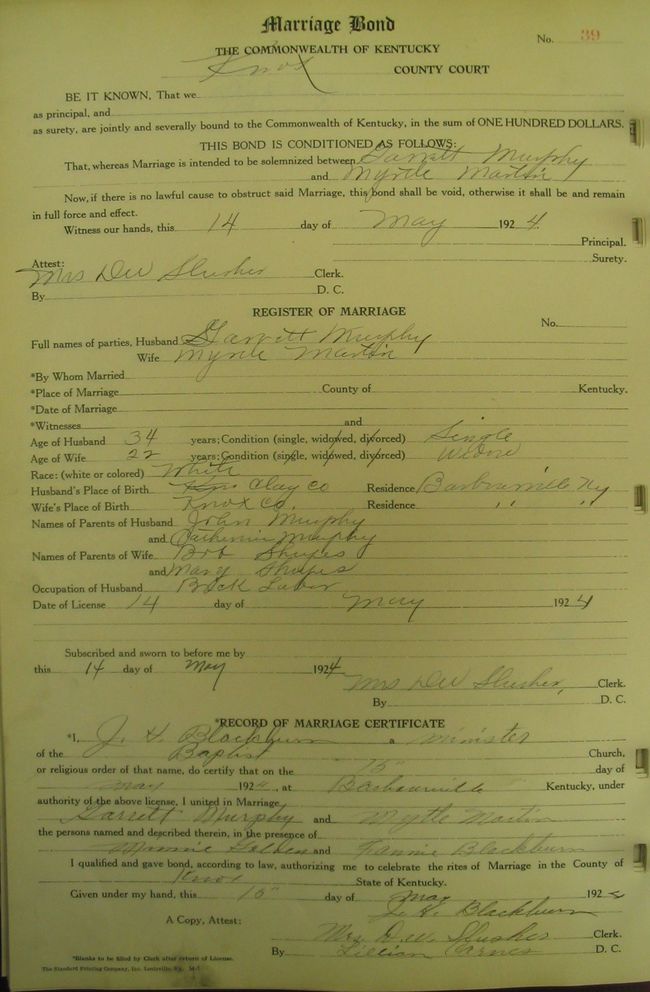 Marriage Bond
No. 39
THE COMMONWEALTH OF KENTUCKY
Knox COUNTY COURT
BE IT KNOWN, That we
as principal, and
as surety, are jointly and severally bound to the Commonwealth of Kentucky, in the sum of ONE HUNDRED DOLLARS.
THIS BOND IS CONDITIONED AS FOLLOWS:
That, whereas Marriage is intended to be solemnized between Garrett Murphy
and Myrtle Martin
Now, if there is no lawful cause to obstruct said Marriage, this bond shall be void, otherwise it shall be and remain
in full force and effect.
Witness our hands, this 14 day of May 1924.
Principal.
Attest: Surety.
Mrs DW Slusher Clerk.
By D. C.
REGISTER OF MARRIAGE
No.
Full names of parties, Husband Garrett Murphy
Wife Myrtle Martin
*By Whom Married
*Place of Marriage County of Kentucky.
*Date of Marriage
*Witnesses and
Age of Husband 34 years; Condition (single, widowed, divorced) Single
Age of Wife 22 years; Condition (single, widowed, divorced)
Race: (white or colored) White
Husband's Place of Birth Clay Co Residence Barbourville Ky
Wife's Place of Birth Knox Co. Residence " "
Names of Parents of Husband John Murphy
and Catherine Murphy
Names of Parents of Wife Bob
and Mary
Occupation of Husband Brick Labor
Date of License 14 day of May 1924
Subscribed and sworn to before me by
this 14 day of May 1924
Mrs DW Slusher, Clerk.
By D. C.
*RECORD OF MARRIAGE CERTIFICATE
*I, J. H. Blackburn a minister
of the Baptist Church,
or religious order of that name, do certify that on the 15" day of
May 1924, at Barbourville Kentucky, under
authority of the above license, I united in Marriage
Garrett Murphy and Myrtle Martin
the persons named and described therein, in the presence of
Minnie Golden and Fannie Blackburn
I qualified and gave bond, according to law, authorizing me to celebrate the rites of Marriage in the County of
Knox State of Kentucky.
Given under my hand, this 15" day of May 1924
J. H. Blackburn
A Copy, Attest:
Mrs D.W. Slusher Clerk.
By Lillian Carnes D. C.
*Blanks to be filled by Clerk after return of License.
The Standard Printing Company, Inc. Louisville, Ky.